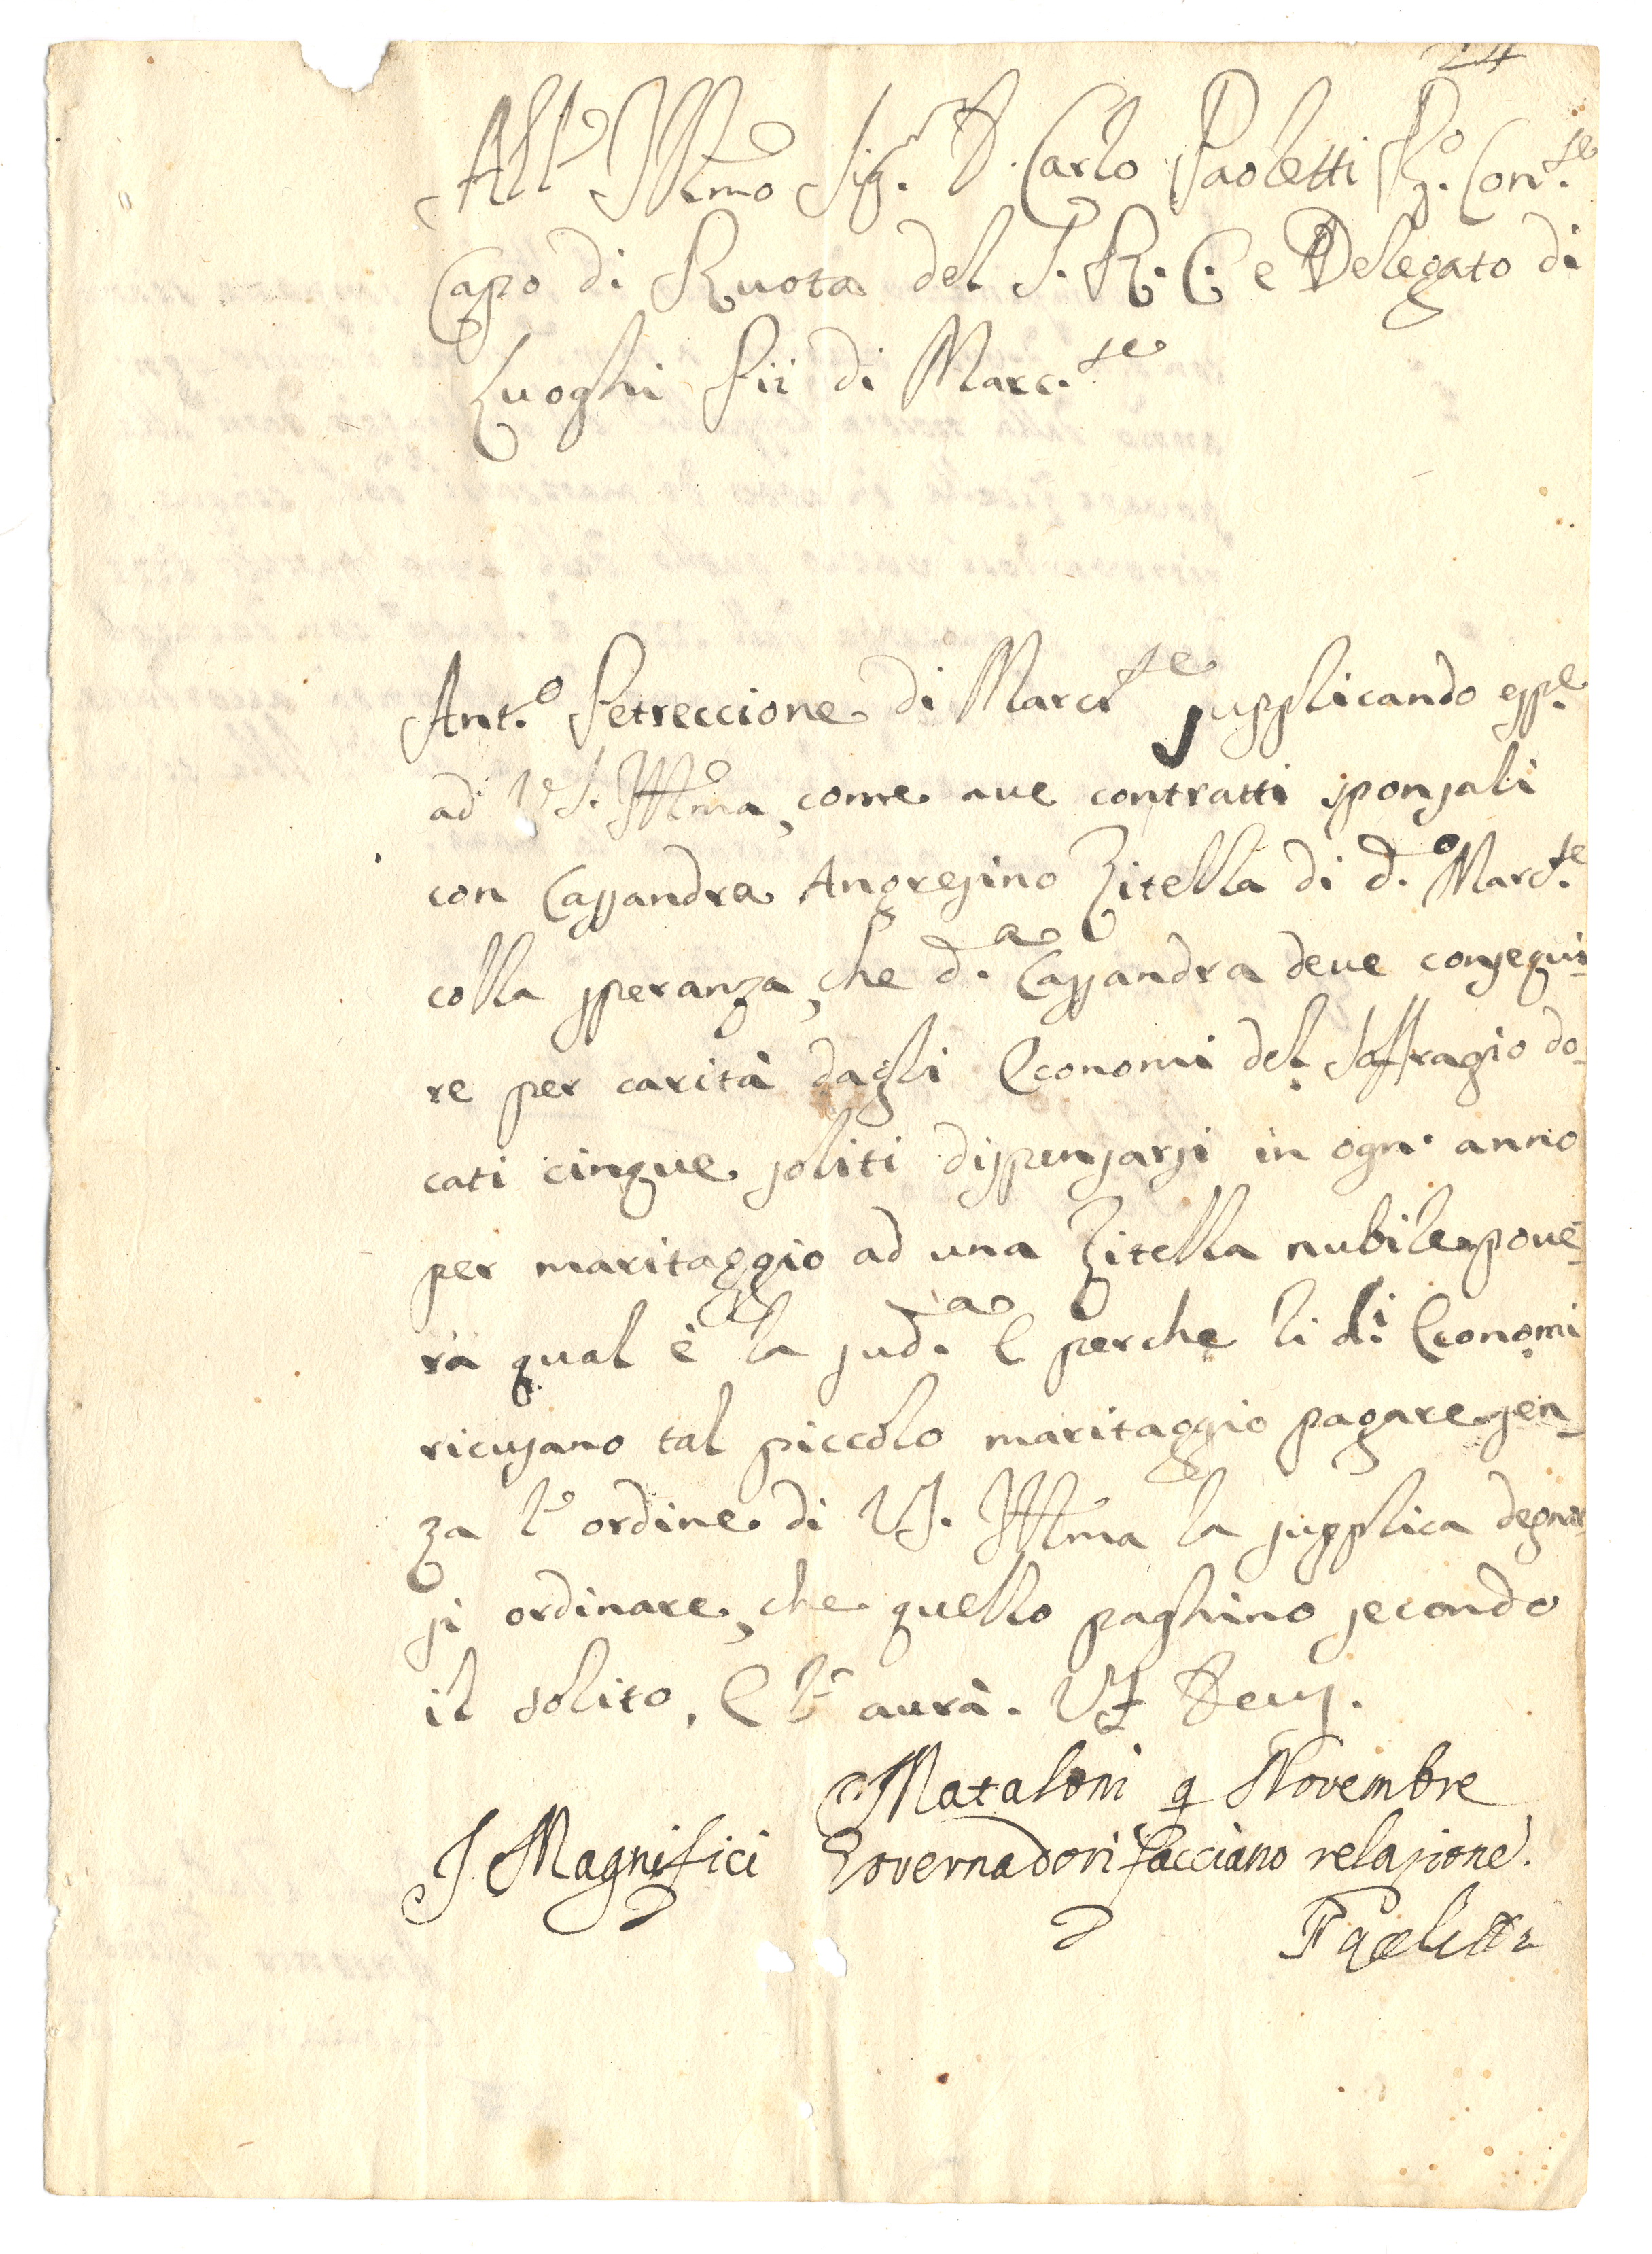 24
All' Ill.mo Sig.r D. Carlo Paoletti R.o Con.re
Capo di Ruota del S. R. C. e Delegato di
Luoghi Pii di Marc.se
Ant.o Petreccione di Marc.se supplicando esp.e
ad V.S. Ill.ma, come ave contratti sponsali
con Cassandra Angresino Zitella di d.o Marc.se
colla speranza, che d.a Cassandra deve consegui-
re per carità dagli Economi del Soffragio do-
cati cinque soliti dispensarsi in ogn' anno
per maritaggio ad una Zitella nubile, pove-
ra qual è la sud.a E perche li d.i Economi
ricusano tal piccolo maritaggio pagare sen-
za l' ordine di V.S. Ill.ma la supplica degnar
si ordinare, che quello paghino secondo
il solito, E l' avrà. Ut Deus.
Mataloni 9 Novembre
I Magnifici Governadori facciano relazione.
Paoletti